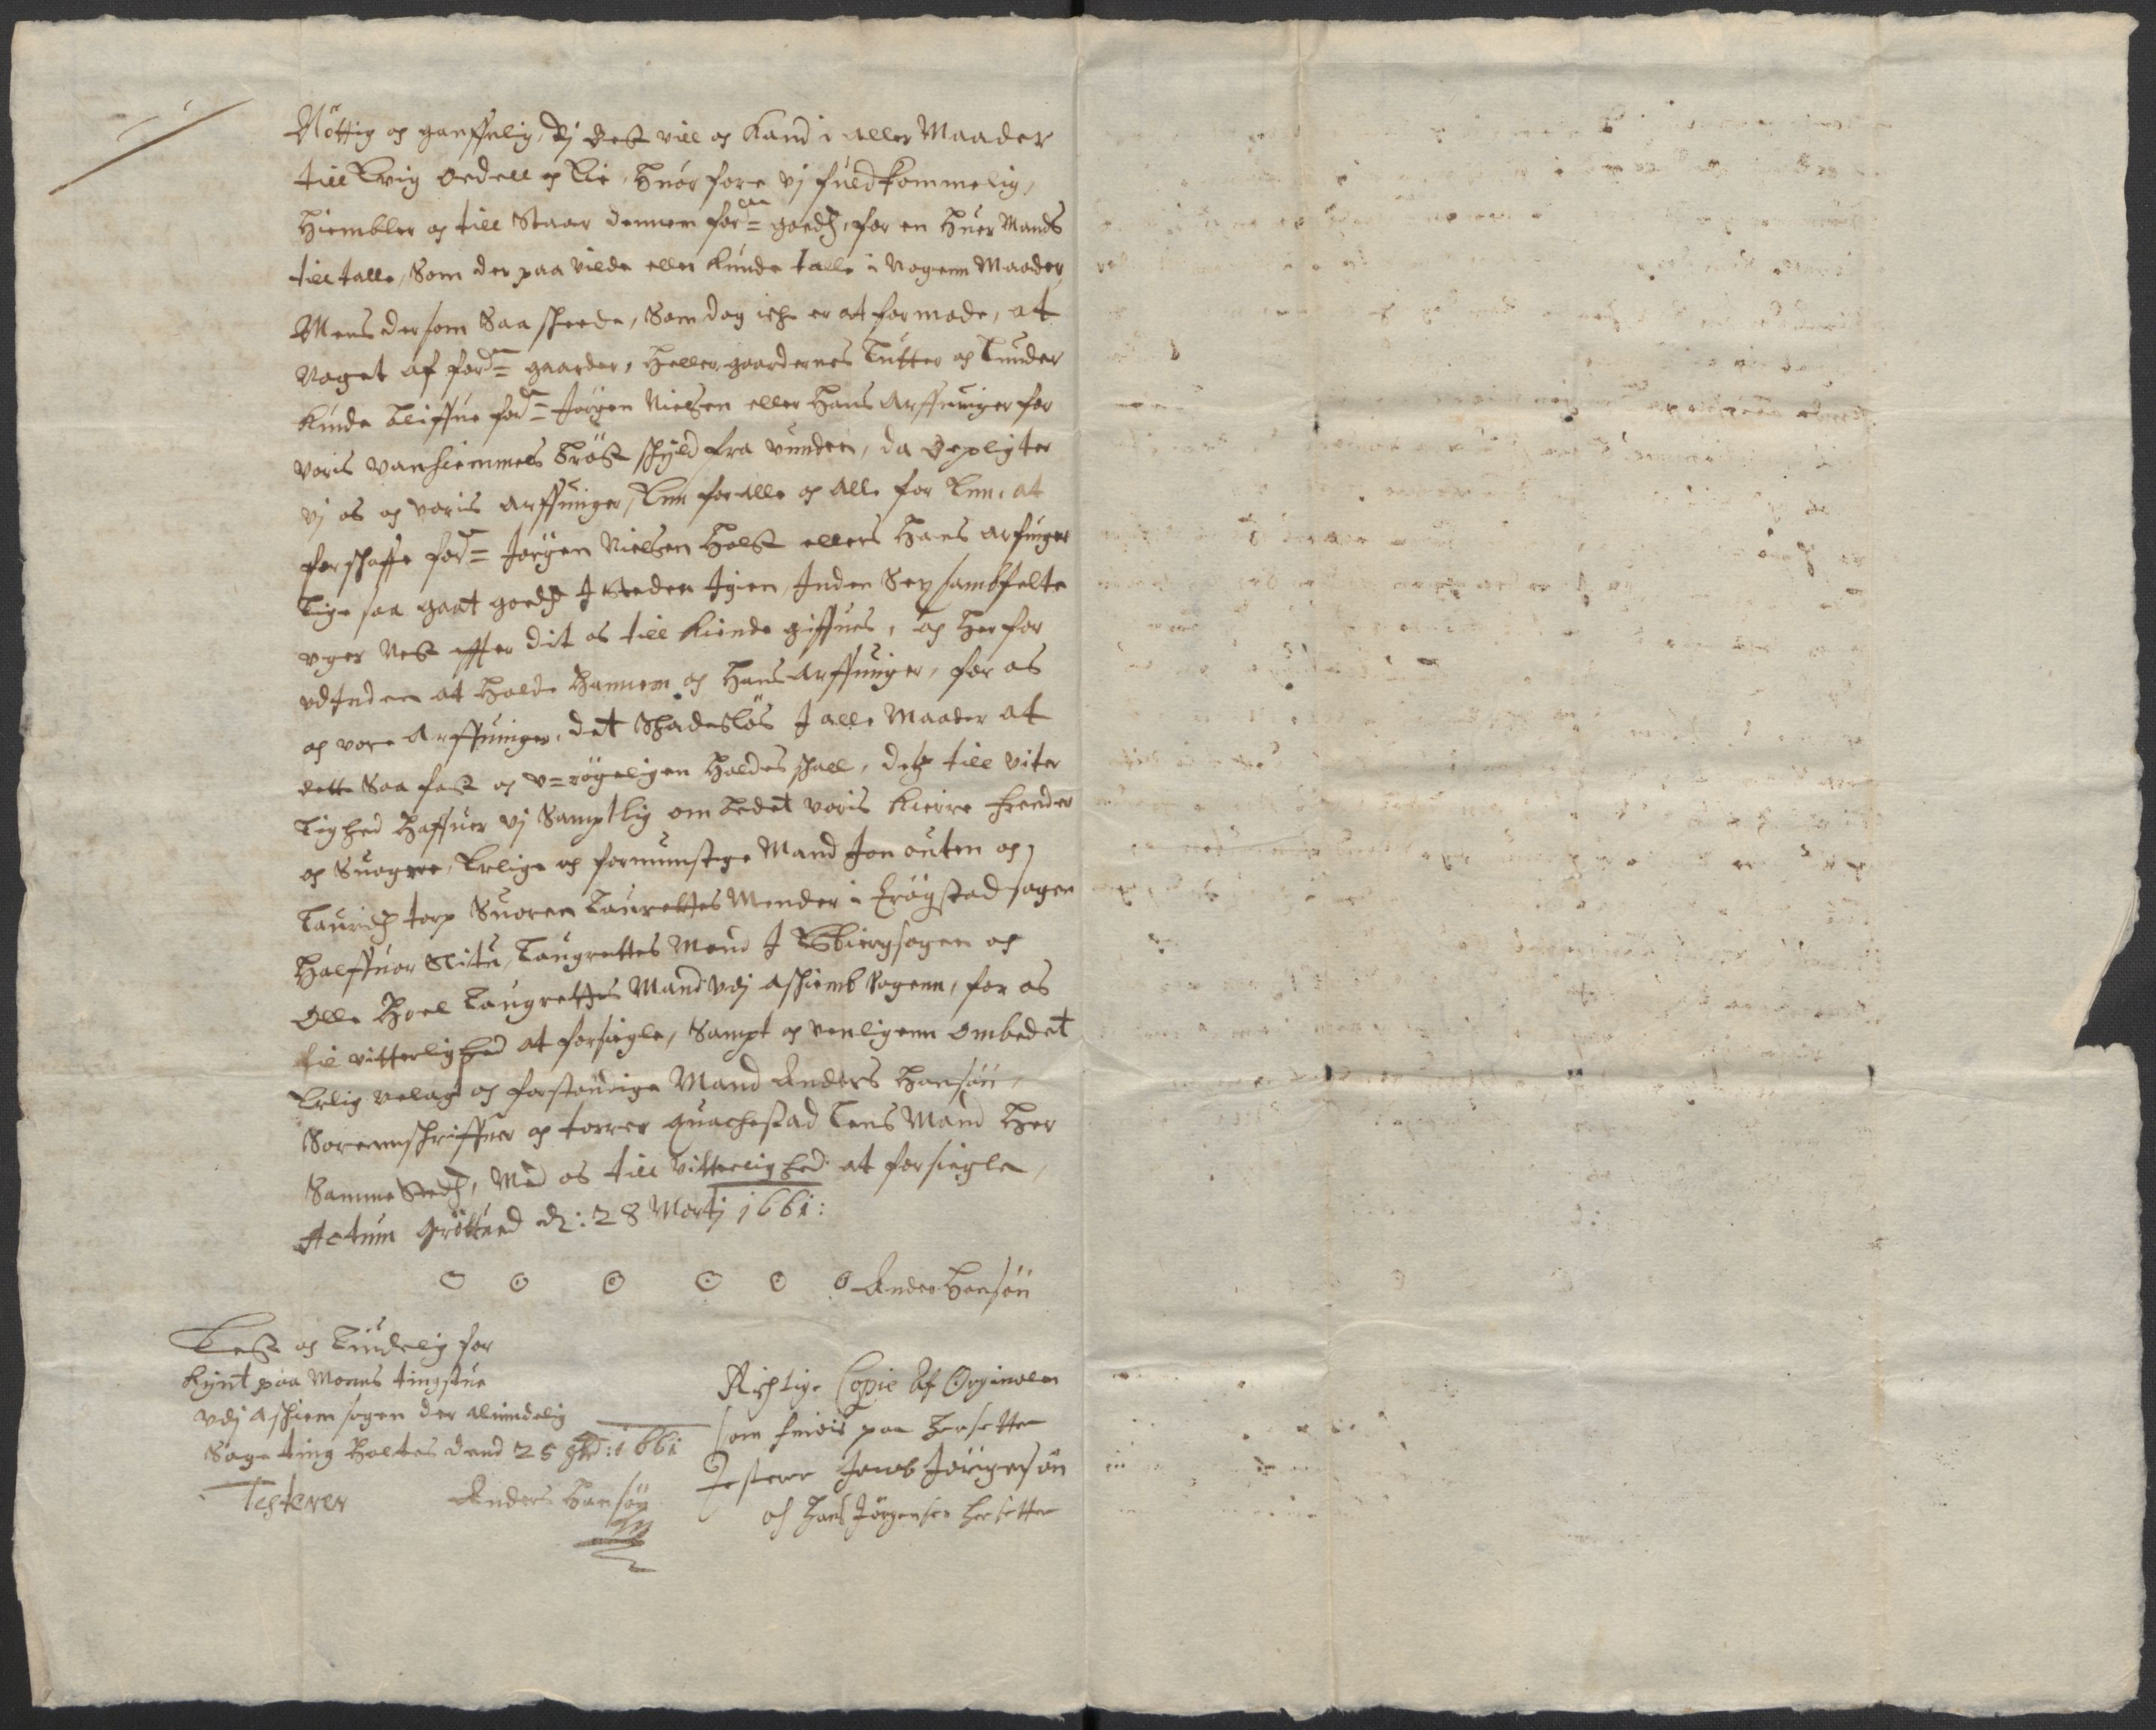 Nöttig og gaffnlig, dj Best vill og Kand i aller Maader
till Evig oedell og Eie, Huor fore vj fuldkommelig,
Hiembler og till Staar dennem ford= goedtz, for en Huer Mands
till talle, Som der paa vilde eller kunde talle i Nogenn Maader,
Mens der som Saa skeede, Som dog iche er at formode, at
Noget af ford= gaarder, Heller gaardernes Lutter og Lunder
kunde bliffue ford= Jörgen Nielsen eller Hans Arffuinger for
voris vanhiemmels bröst skyld fra vunden, da Bepligter
vj os og voris Arffuinger, Een for alle og Alle for Een, at
forskaffe ford= Jörgen Nielsen Holst ellers Hans arfinger
Lige saa gaat goedtz I Steden Igien, Inden Sex sambfelte
vger Nest effter dit os till kiende giffues, og Her for
vdInden at Holde Hannem og Hans Arffuinger, for os
og vore Arffuinger, det Skadeslös I alle Maader at
dette Saa fast og v=rögeligen Holdes skall, dets till viter
Lighed Haffuer vj Samptlig ombedet voris kierre frender
og Suogere, Erlige og fornumstige Mand Jon outen og
Lauridtz torp Suoren Laurettes Mender i Erögstad sogen
Halffuor Slitu, Laugrettes Mand I Edbiergsogen og
Olle Hoel Laugrettes Mand vdj Askiemb Sogenn, for os
til vitterlighed at forsiegle, Sampt og venligenn Ombedet
Erlig velagt og forstandige Mand Anders Hansön,
Sorennskriffuer og torrer guachestad Lens Mand Her
Samme Stedtz, Med os till vitterlighed at forsiegle,
Actum Gröttued dn: 28 Martj 1661:
Ander Hansön
Lest og Liudelig for
kynt paa Mones tingstue
vdj Askiem sogen der Almindelig
Sage ting Holtes dend 25 1661
Testerer Anders Hansön
Rigtige Copie Af Orginalen
som findis paa Hersetter
Testerer Jacob Jörgensön
og Hans Jörgensen Hersetter